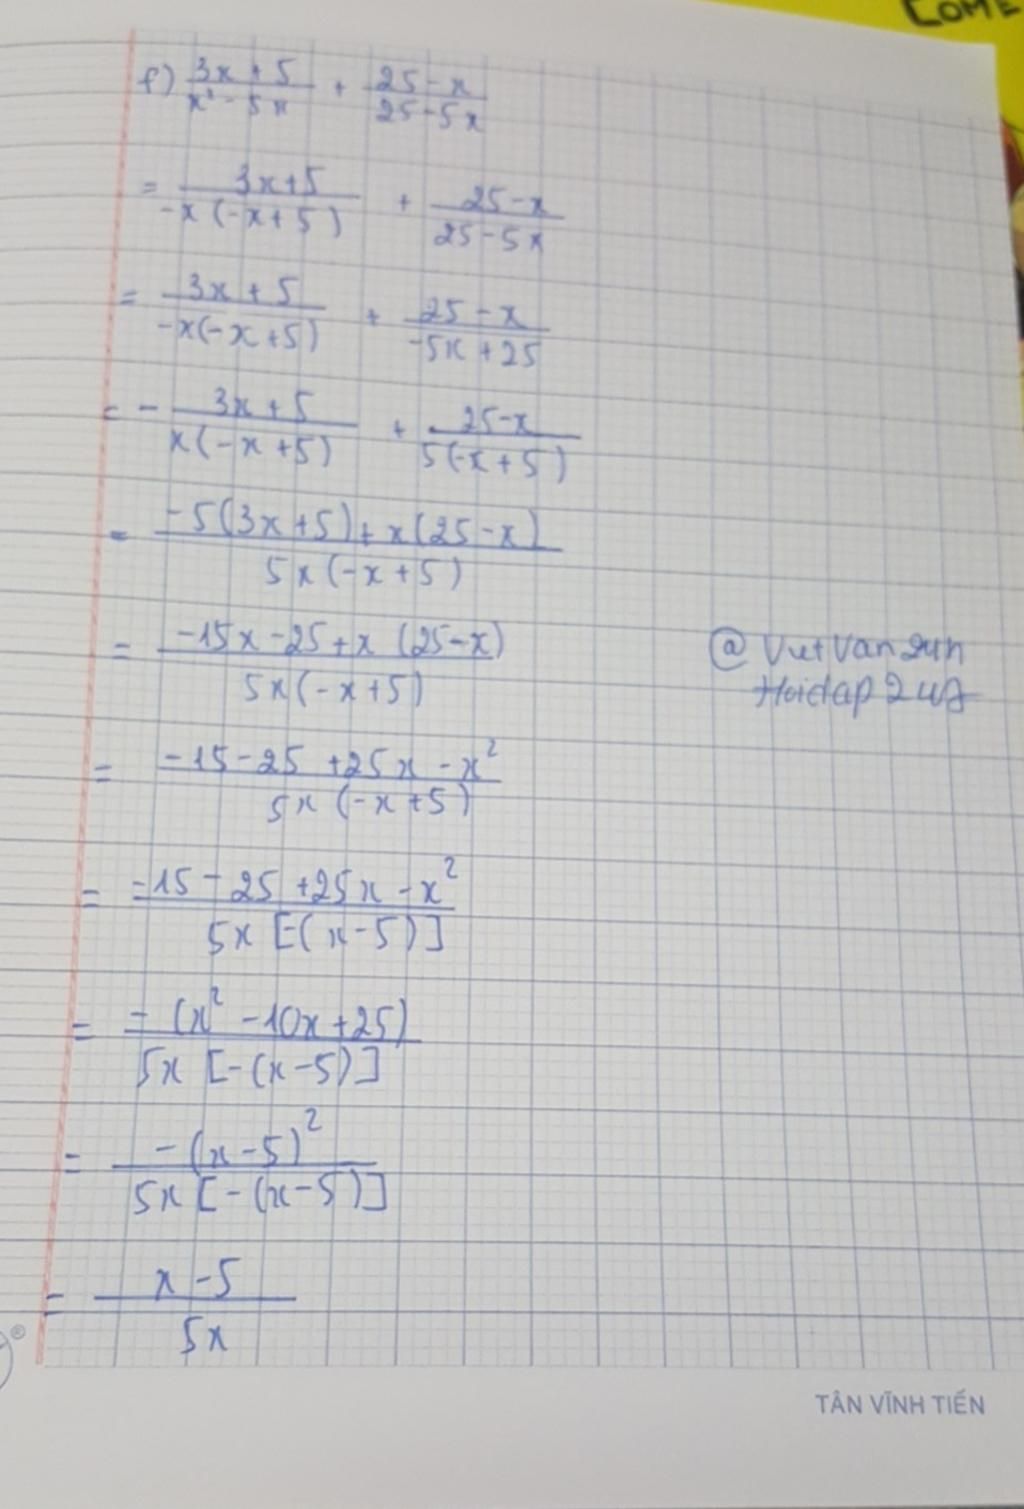 COME
f) (3x+5)/(x²-5x) + (25-x)/(25-5x)
= (3x+5)/(-x(-x+5)) + (25-x)/(25-5x)
= (3x+5)/(-x(-x+5)) + (25-x)/(-5x+25)
= - (3x+5)/(x(-x+5)) + (25-x)/(5(-x+5))
= (-5(3x+5)+x(25-x))/(5x(-x+5))
= (-15x-25+x(25-x))/(5x(-x+5))
@
= (-15-25+25x-x²)/(5x(-x+5))
= (-15-25+25x-x²)/(5x[-(x-5)])
= (-(x²-10x+25))/(5x[-(x-5)])
= (-(x-5)²)/(5x[-(x-5)])
= (x-5)/(5x)
®
TÂN VĨNH TIẾN